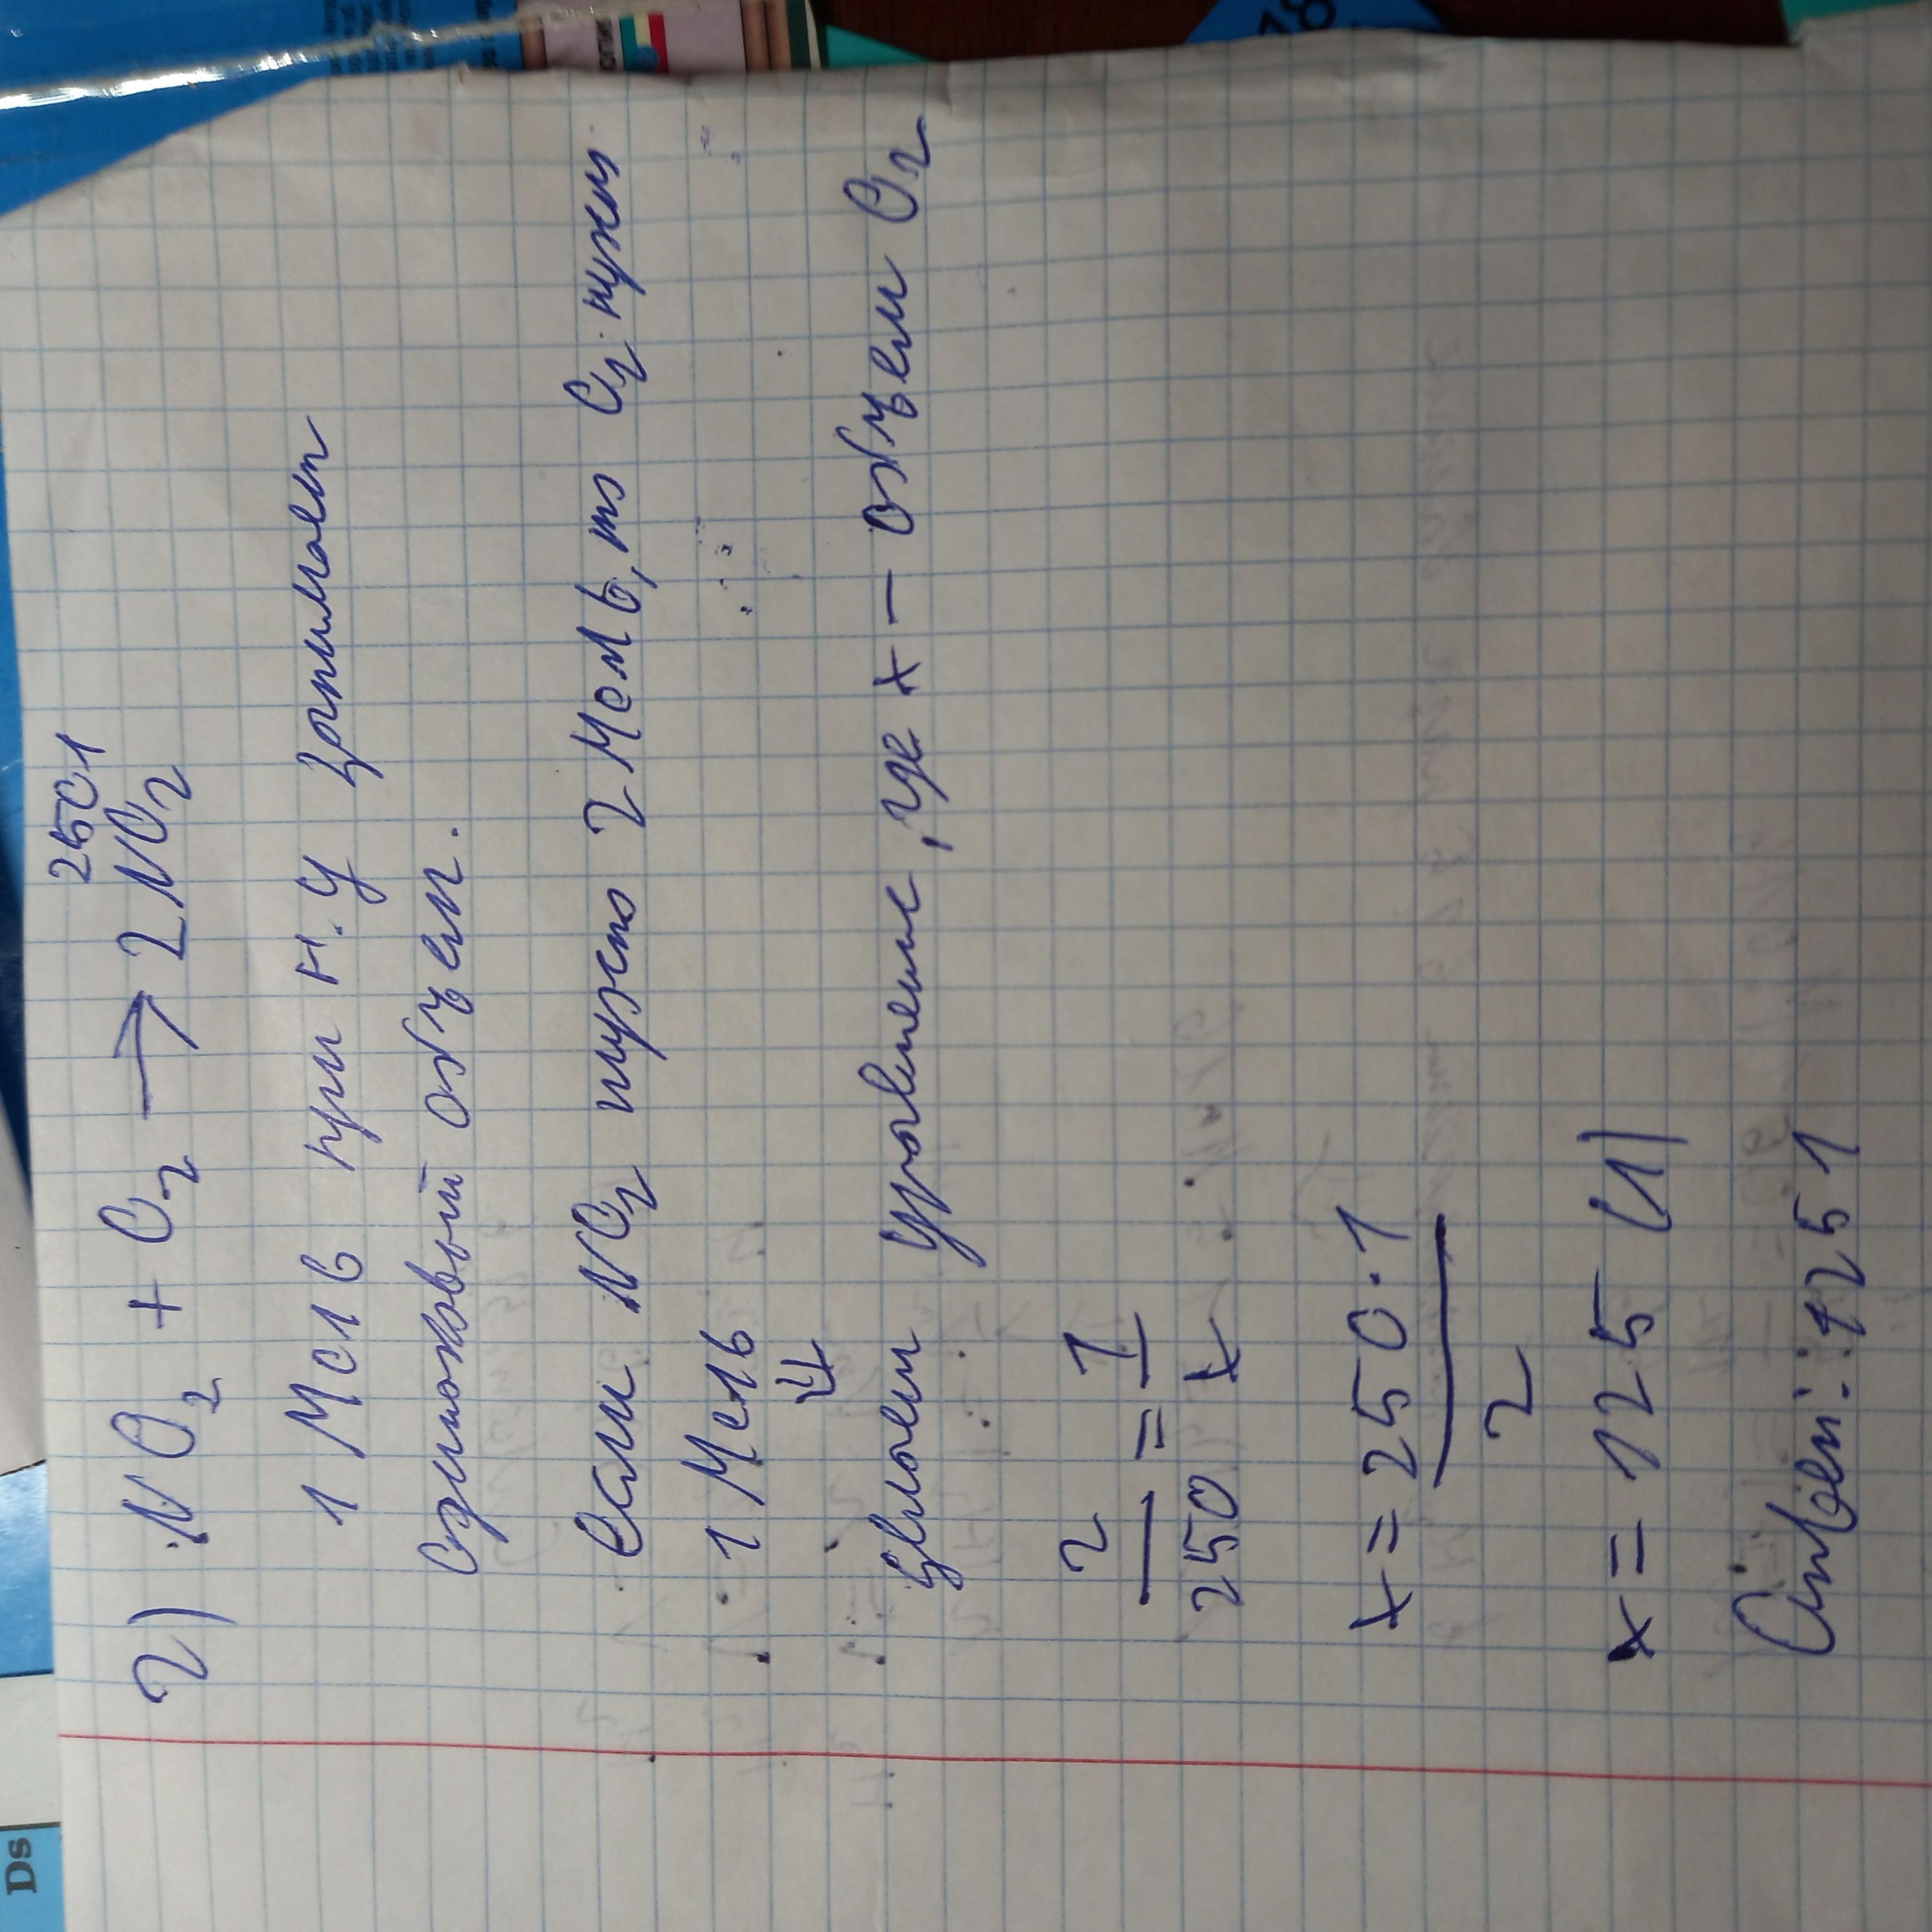 250 l
2) NO2 + O2 → 2NO2
1 Моль при н.у занимает
одинаковый объем.
Если NO2 нужно 2 Моль, то O2 нужно
1 Моль
⇓
имеем уравнение, где x — объем O2
2/250 = 1/x
x = 250·1/2
x = 125 (l)
Ответ: 125 l
Ds
18